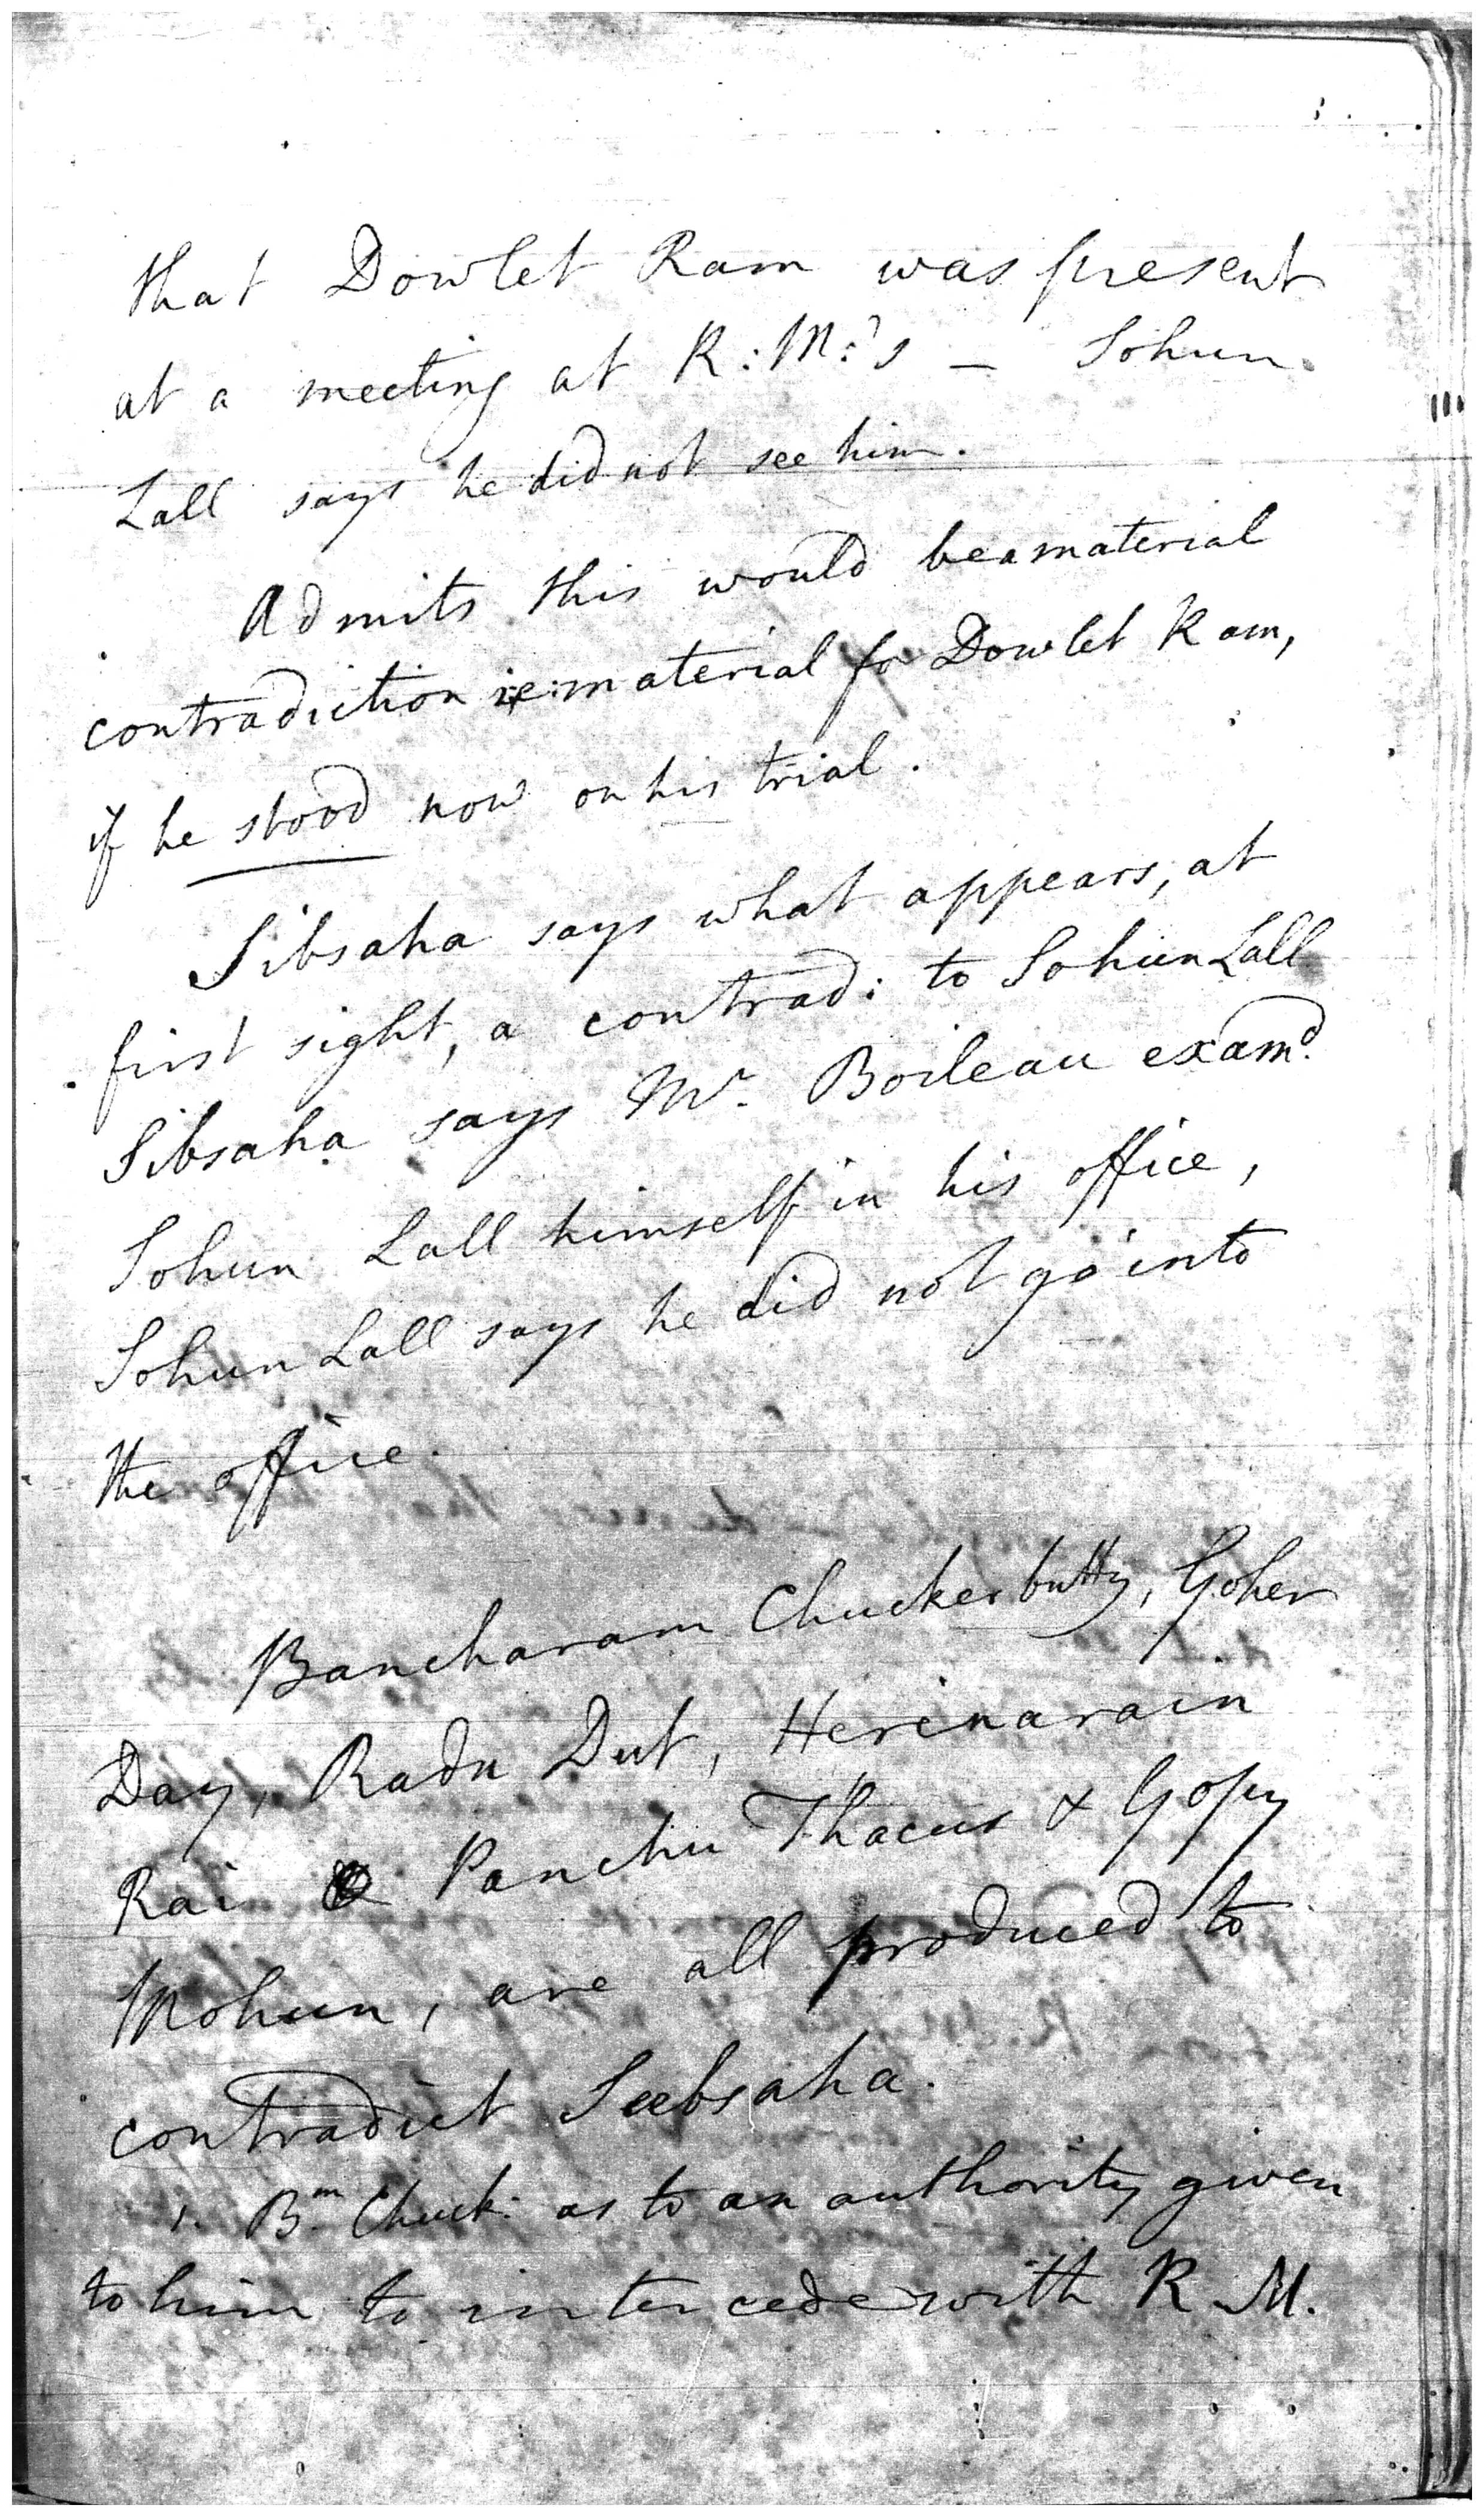 that Dowlet Ram was present
at a meeting at R: M:'s — Sohun
Lall says he did not see him.
Admits this would be a material
contradiction i:e: material for Dowlet Ram,
if he stood now on his trial.
Sibsaha says what appears, at
first sight, a contrad: to Sohun Lall
Sibsaha says Mr. Boileau examd.
Sohun Lall himself in his office,
Sohun Lall says he did not go into
the office.
Bancharam Chuckerbutty, Goher
Day, Radu Dut, Herinarain
Rai Panchu Thacur & Gopy
Mohun, are all produced to
contradict Seebsaha.
1. Bm. Chuck: as to an authority given
to him to intercede with R. M.